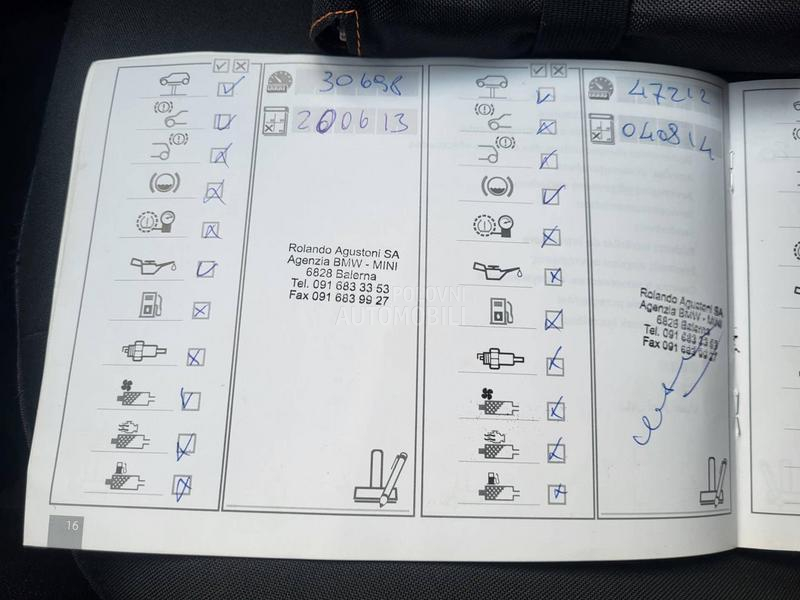 30698
200613
Rolando Agustoni SA
Agenzia BMW - MINI
6828 Balerna
Tel. 091 683 33 53
Fax 091 683 99 27
47212
040814
Rolando Agustoni SA
Agenzia BMW - MINI
6828 Balerna
Tel. 091 683 33 53
Fax 091 683 99 27
POLOVNI
AUTOMOBILI
16